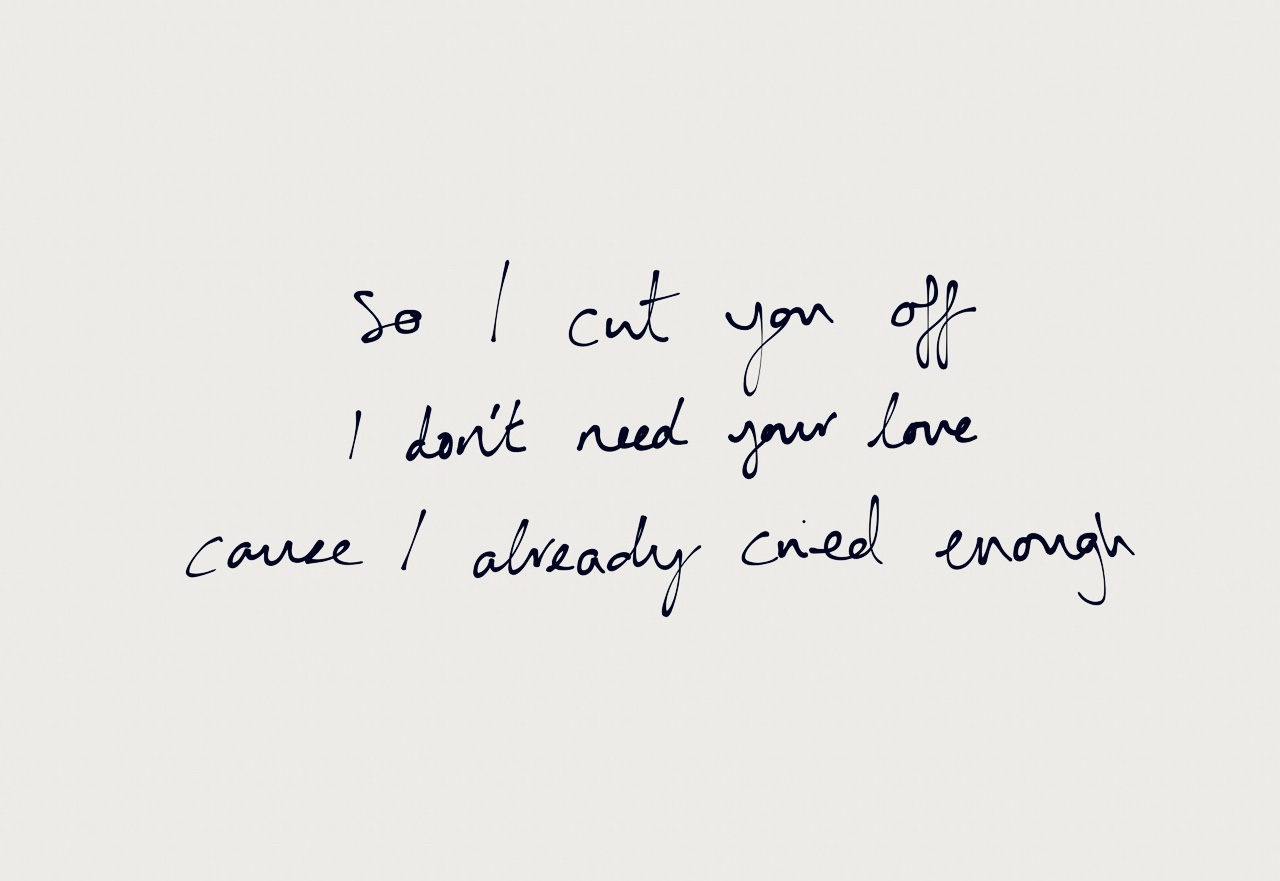 So I cut you off
I don't need your love
cause I already cried enough